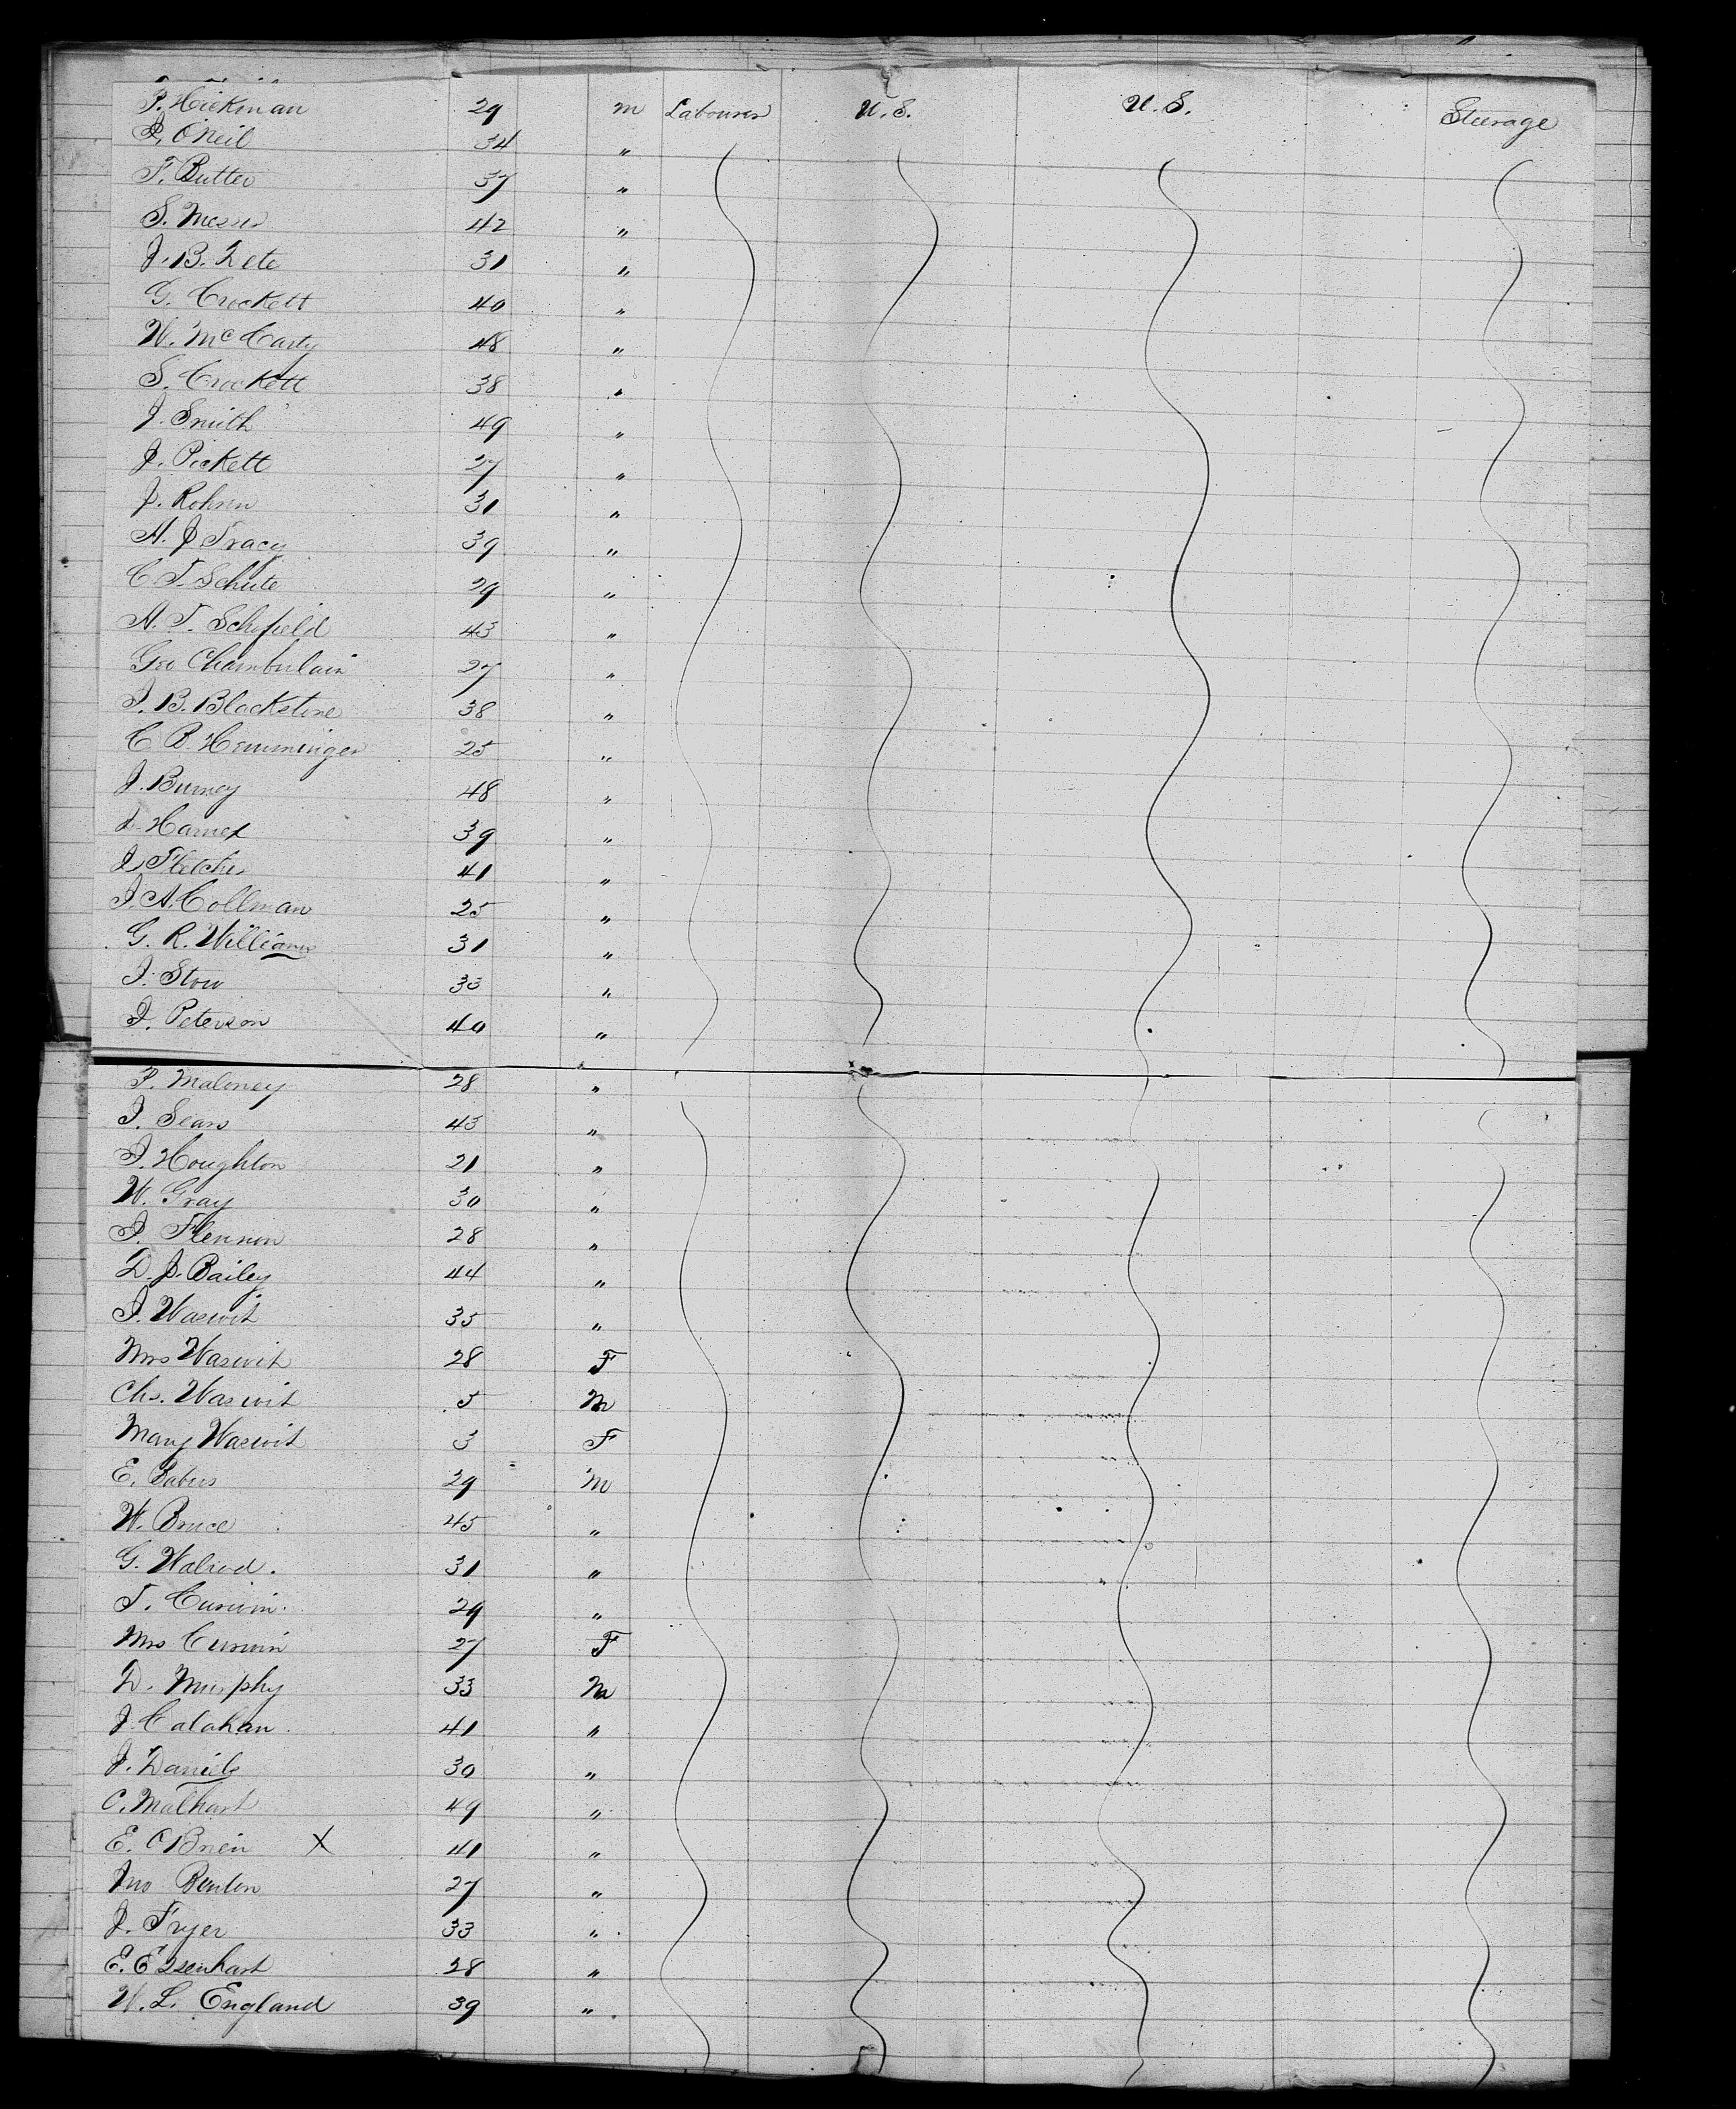 P. Hickman 29 m Labourer U.S. U.S. Steerage
P. O'Neil 34 "
F. Butler 37 "
S. Messer 42 "
J. B. 31 "
G. Crockett 40 "
W. McCarty 48 "
S. Crockett 38 "
J. Smith 49 "
J. Pickett 27 "
J. Rohren 31 "
H. J Tracy 39 "
C. T. Schute 29 "
A. T. Schofield 43 "
Geo Chamberlain 27 "
J. B. Blackstone 38 "
C B. Hemminger 25 "
J. Burney 48 "
39 "
J Fletcher 41 "
J. A. Collman 25 "
G. R. Williams 31 "
J. Stow 33 "
J. Peterson 40 "
P. Maloney 28 "
J. Sears 43 "
J. Houghton 21 "
W. Gray 30 "
J. Flennon 28 "
D. J. Bailey 44 "
J. Waswith 35 "
Mrs Waswith 28 F
Chs. Waswith 5 M
Mary Waswith 3 F
E. 29 M
W. Bruce 45 "
G. Walrod. 31 "
T. Curwin 29 "
Mrs Curwin 27 F
D. Murphy 33 M
J. Calahan 41 "
J. Daniels 30 "
C. Malhart 49 "
E. O'Brien X 41 "
Jno Benton 27 "
J. Fryer 33 "
E. Essenhart 28 "
W. L. England 39 "